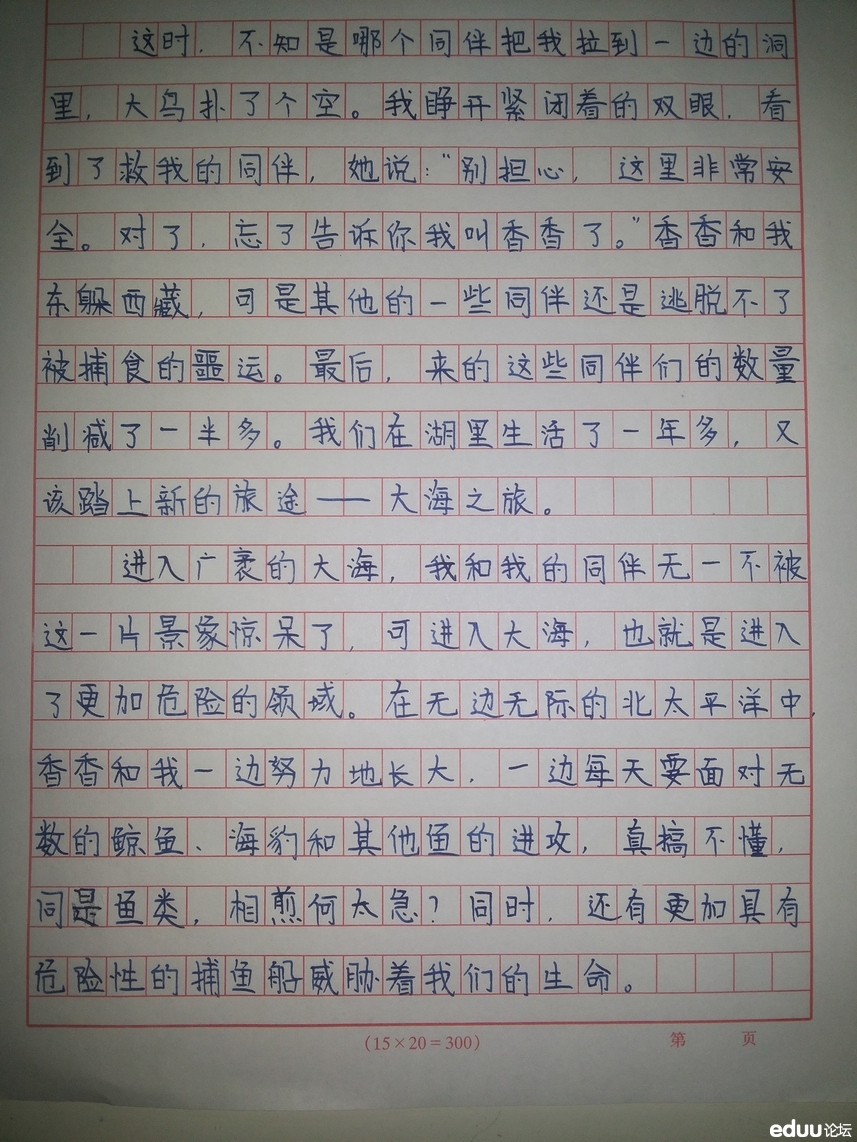 这时，不知是哪个同伴把我拉到一边的洞
里，大鸟扑了个空。我睁开紧闭着的双眼，看
到了救我的同伴，她说：“别担心，这里非常安
全。对了，忘了告诉你我叫香香了。”香香和我
东躲西藏，可是其他的一些同伴还是逃脱不了
被捕食的噩运。最后，来的这些同伴们的数量
削减了一半多。我们在湖里生活了一年多，又
该踏上新的旅途——大海之旅。
进入广袤的大海，我和我的同伴无一不被
这一片景象惊呆了，可进入大海，也就是进入
了更加危险的领域。在无边无际的北太平洋中，
香香和我一边努力地长大，一边每天要面对无
数的鲸鱼、海豹和其他鱼的进攻，真搞不懂，
同是鱼类，相煎何太急？同时，还有更加具有
危险性的捕鱼船威胁着我们的生命。
（15×20=300） 第 页
eduu论坛